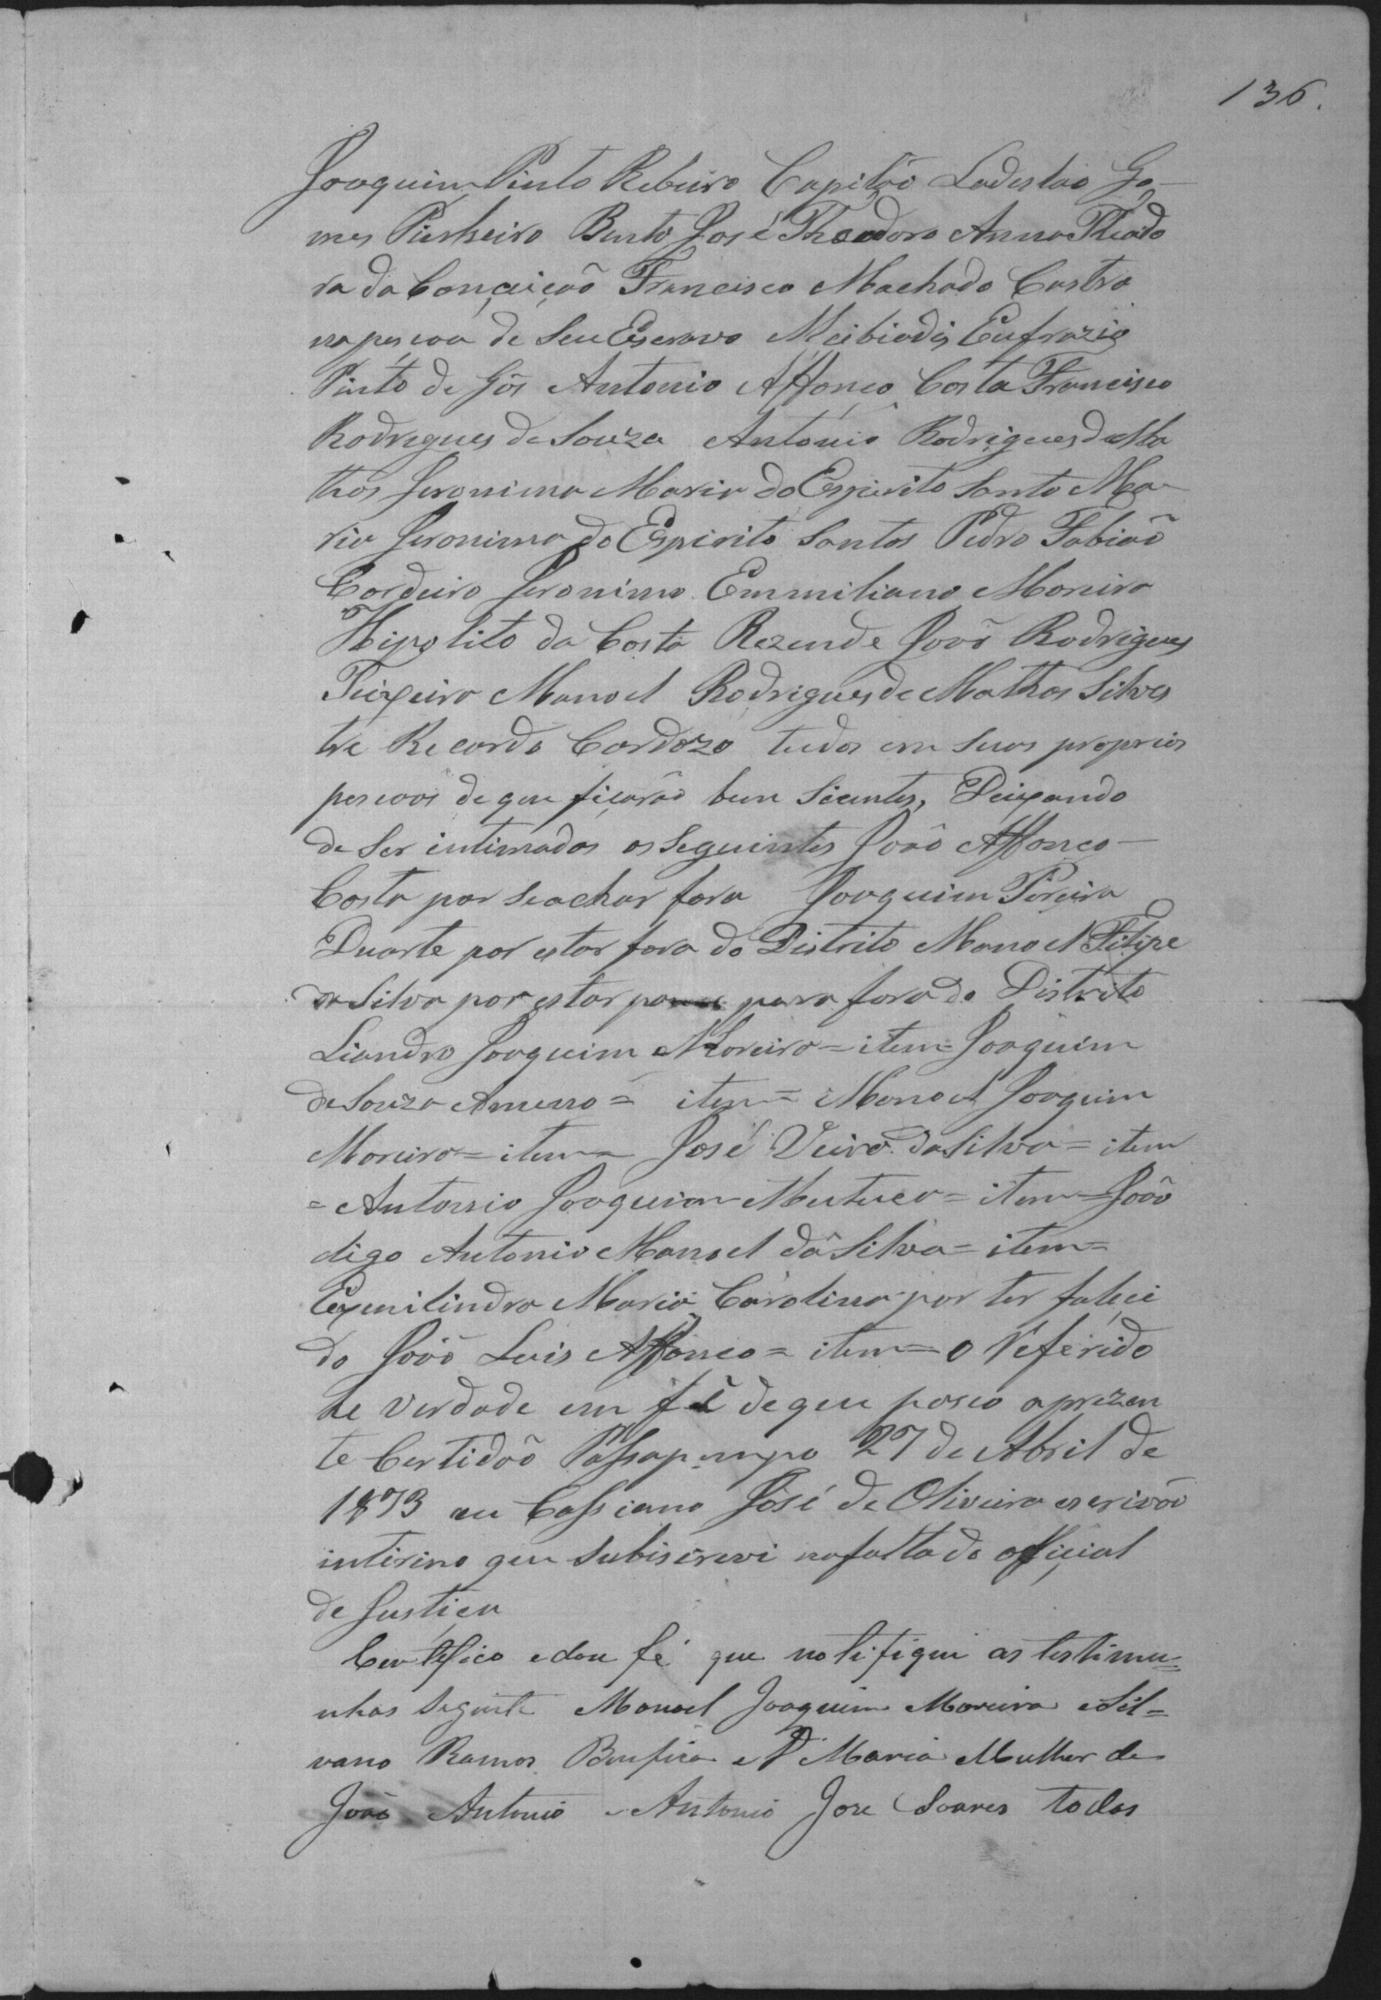 136.
Joaquim Pinto Ribeiro Capitão Ladeslao Go-
mes Pinheiro Bento José Theodoro Anna Theodo
ra da Conçaição Francisco Machado Castro
na pescoa de Seu Escravo Alcibiadis Eufrazio
Pinto de Gós Antonio Affonço Costa Francisco
Rodrigues de Souza Antonio Rodrigues de Ma
thos Jeronima Maria do Espirito Santo Ma-
ria Jeronima do Espirito Santos Pedro Fabiaõ
Cordeiro Jeronimo Emmiliano Moreira
Hipolito da Costa Rezende Joaõ Rodrigues
Teixeira Manoel Rodrigues de Mathos Silves
tre Recardo Cardozo tudos em suas proprias
pescoas de que ficaraõ bem Scientes, Deixando
de Ser intimados os Seguintes Joaõ Affonco-
Costa por se achar fora Joaquim Pereira
Duarte por estar fora do Distrito Manoel Felipe
da Silva por estar para fora do Distrito
Liandro Joaquim Moreira = item = Joaquim
de Souza = item = Manoel Joaquim
Moreira = item = José Vieira da Silva = item
= Antonio Joaquim Mutuca = item = Joaõ
digo Antonio Manoel da Silva = item =
Exmilindra Maria Carolina por ter faleci
do Joaõ Luis Affonco = item = O Referido
he verdade em fé de que paseo a prezen
te Certidaõ Passapempo 27 de Abril de
1873 eu Cassiano José de Oliveira escrivaõ
intirino que Subiscrevi na falta do official
de Justiça
Certifico e dou fé que notifiquei as testimu=
nhas seguinte Manoel Joaquim Moreira e Sil=
vano Ramos Bonfica e D Maria Mulher de
João Antonio e Antonio Jose Soares todos